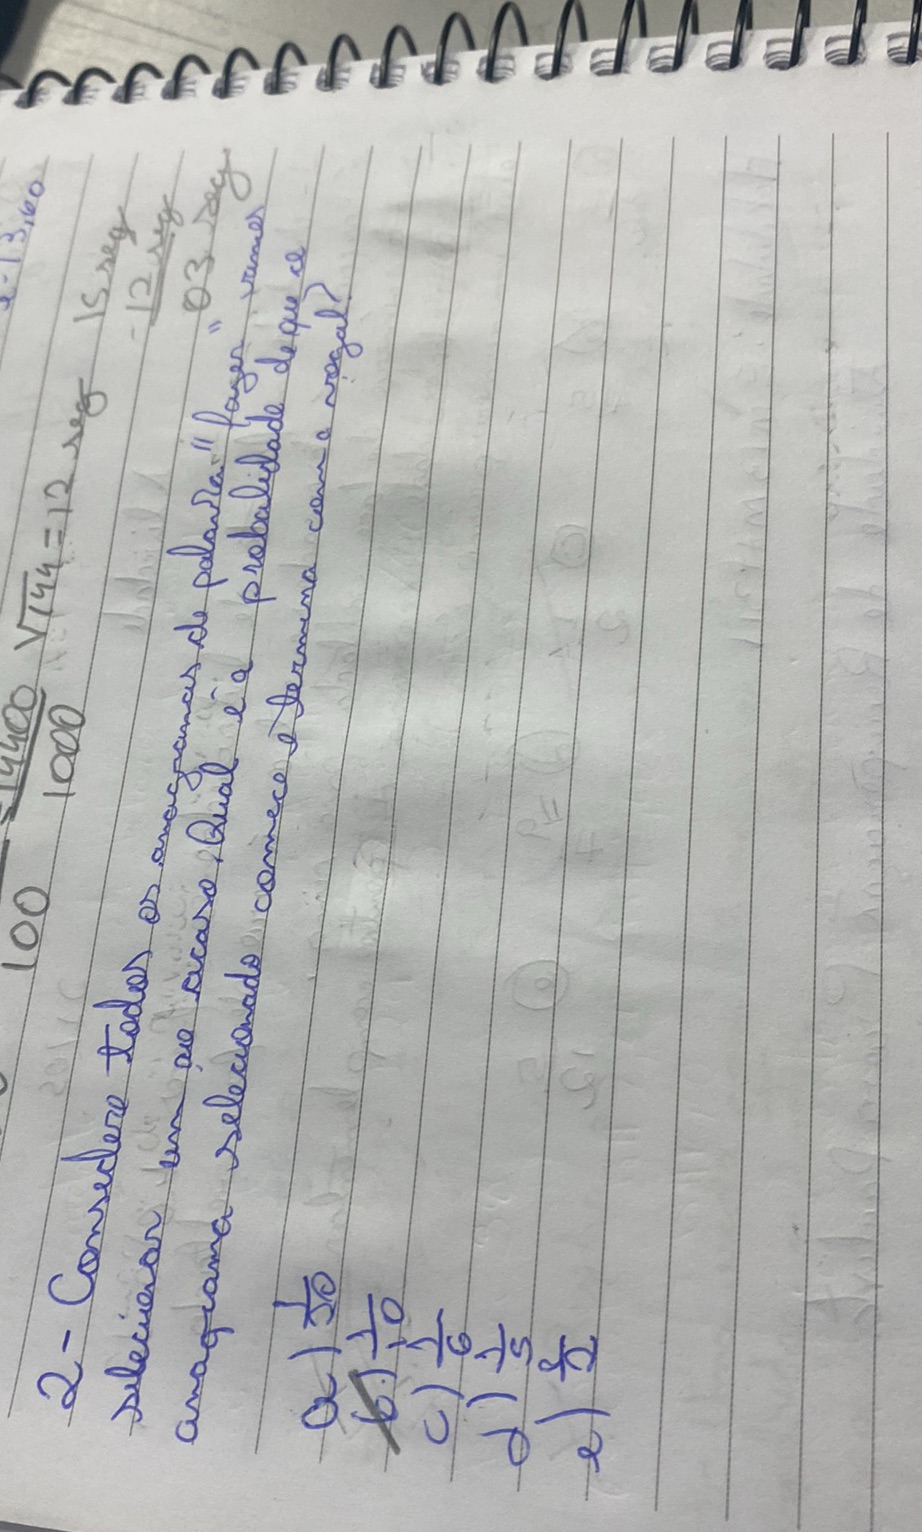 e-13,60
100
=14400
1000
√144 = 12 seg
15 seg
-12 seg
03 seg
2- Considere todos os anagramas de palavra "fazer" vamos
selecionar um ao acaso. Qual é a probalidade de que ce
anagrama selecionado comece e termina com a vogal?
a) 1/50
b) 1/10
c) 1/6
d) 1/5